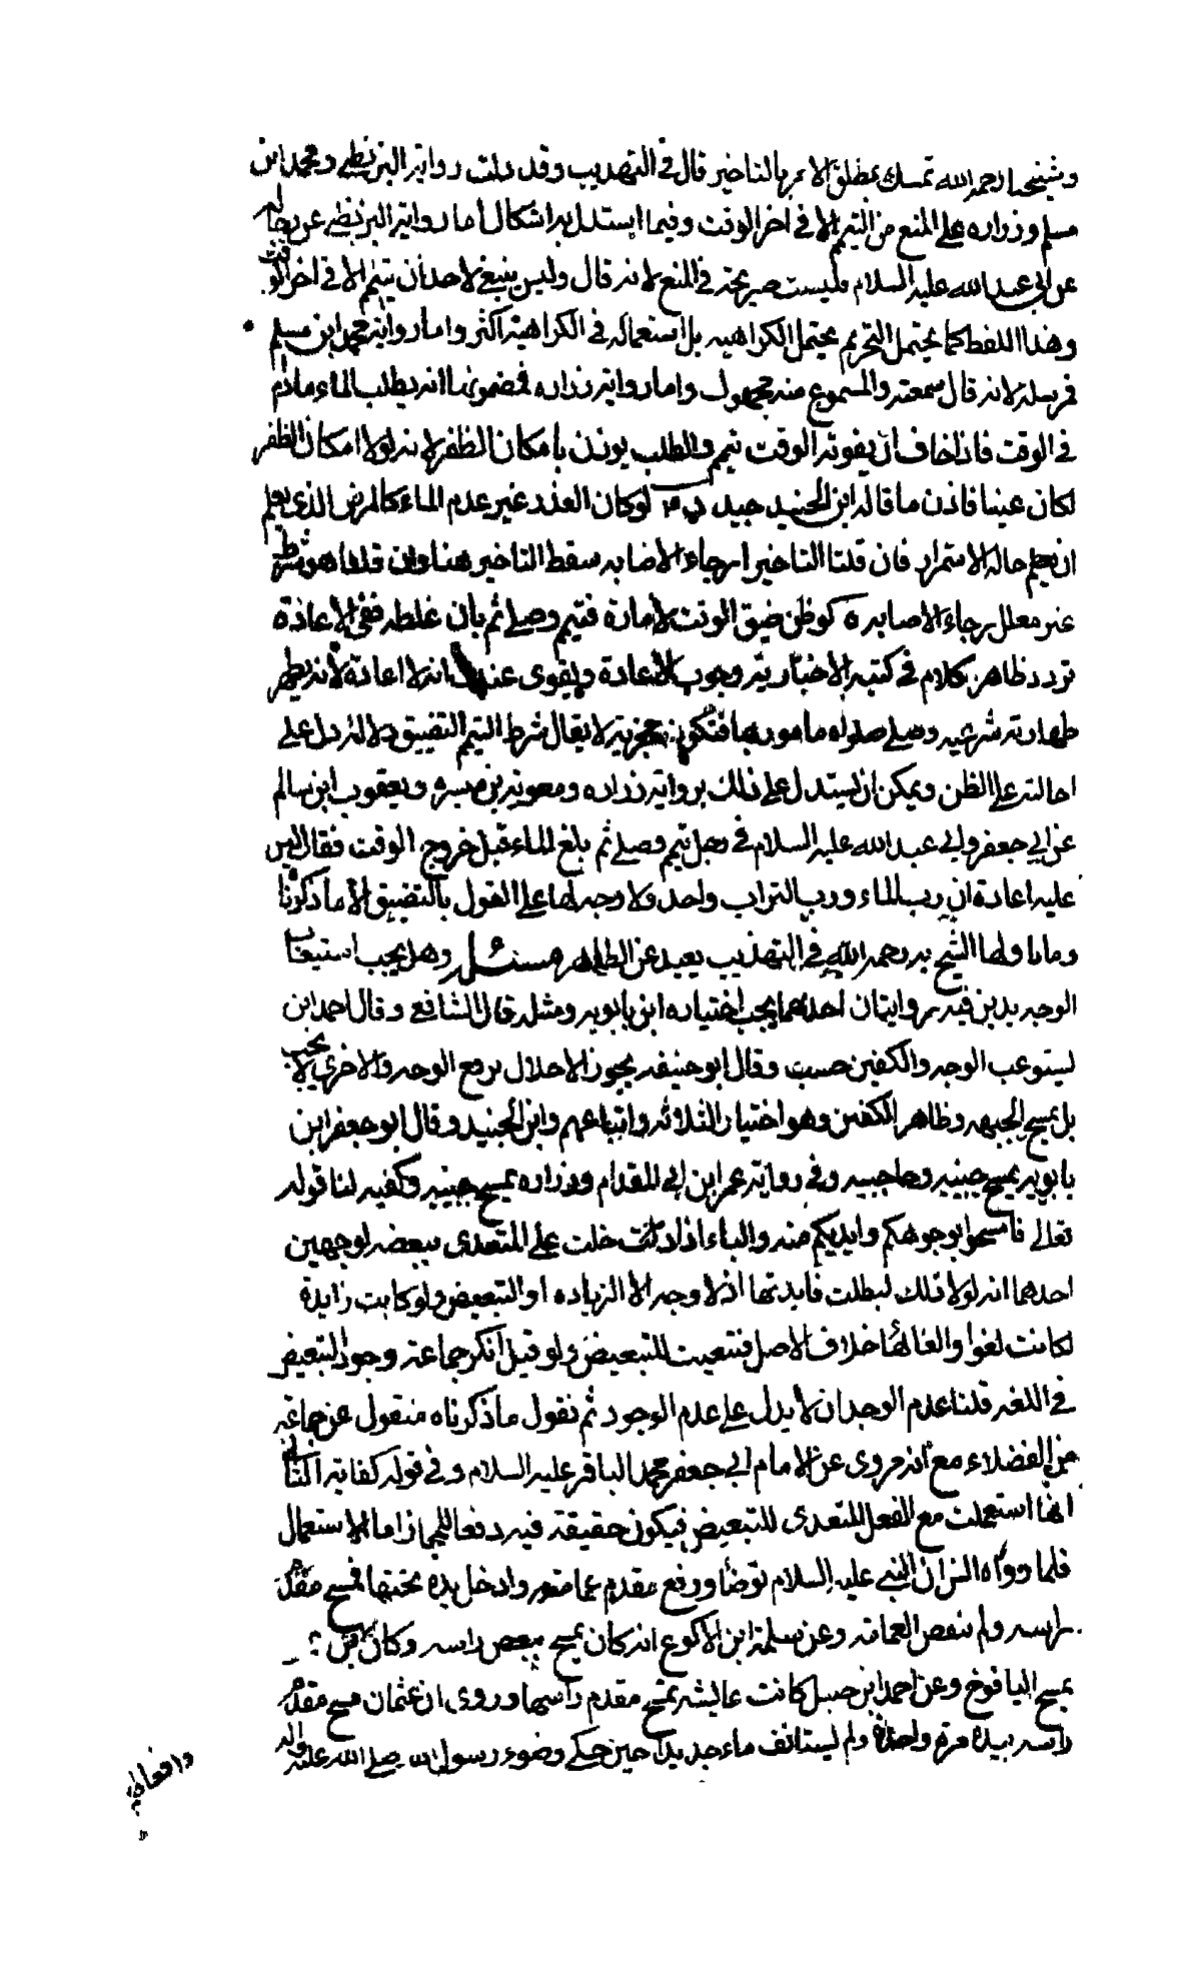 وشيخنا رحمه الله تمسك بمطلق الامر بالتاخير قال في التهذيب وقد دلت رواية البزنطي ومحمد ابن
مسلم وزراره على المنع من التيمم الا في اخر الوقت وفيما استدل به اشكال اما رواية البزنطي عن رجاله
عن ابي عبد الله عليه السلام فليست صريحة في المنع لانه قال وليس ينبغي لاحد ان يتيمم الا في اخر الوقت
وهذا اللفظ كما يحتمل التحريم يحتمل الكراهيه بل استعماله في الكراهية اكثر واما رواية محمد ابن مسلم
فمرسله لانه قال سمعته والمسموع منه مجهول واما رواية زراره فمضمونها انه يطلب الماء مادام
في الوقت فاذا خاف ان يفوته الوقت تيمم والطلب يوذن بامكان الظفر لانه لولا امكان الظفر
لكان عبثا فاذن ما قاله ابن الجنيد جيد لو كان العذر غير عدم الماء كالمرض الذي يعلم
ان يعلم حاله الاستمرار فان قلنا التاخير لرجاء الاصابه سقط التاخير هنا وان قلنا هو شرط
غير معلل برجاء الاصابه ة لو ظن ضيق الوقت لامارة فتيمم وصلى ثم بان غلطه ففي الاعادة
تردد ظاهر كلام في كتبه الاخبارية وجوب الاعادة ويقوى عندي انه لا اعادة لانه تطهر
طهارة شرعيه وصلى صلوة مامور بها فتكون مجزية لا يقال شرط التيمم التضييق لانه دل على
احالته على الظن ويمكن ان يستدل على ذلك برواية زراره ومعوية بن ميسره ويعقوب ابن سالم
عن ابي جعفر وابي عبد الله عليه السلام في رجل تيمم وصلى ثم بلغ الماء قبل خروج الوقت فقال ليس
عليه اعادة ان رب الماء ورب التراب واحد ولا وجه لها على القول بالتضيق الا ما ذكرنا
وما تاولها الشيخ به رحمه الله في التهذيب بعيد عن الظاهر مسئلة وهل يجب استيعاب
الوجه به فيه روايتان احدهما يجب اختياره ابن بابويه ومثله قال الشافعي وقال احمد ابن
يستوعب الوجه والكفين حسب وقال ابو حنيفه يجوز الاخلال بربع الوجه والاخرى لا يجب
بل يمسح الجبهه وظاهر الكفين وهو اختيار الثلاثه واتباعهم وابن الجنيد وقال ابو جعفر ابن
بابويه يمسح جبينيه وحاجبيه وفي رواية عمر ابن ابي المقدام وزراره يمسح جبينيه وكفيه لنا قوله
تعالى فامسحوا بوجوهكم وايديكم منه والباء اذا دخلت على المتعدى ببعضه لوجهين
احدهما انه لولا ذلك لبطلت فايدتها اذ لا وجه الا الزياده او التبعيض ولو كانت زايدة
لكانت لغوا والغائها خلاف الاصل فتعينت للتبعيض ولو قيل انكر جماعته وجود التبعيض
في اللغه قلنا عدم الوجدان لا يدل على عدم الوجود ثم نقول ما ذكرناه منقول عن جماعة
من الفضلاء مع انه مروى عن الامام ابي جعفر محمد الباقر عليه السلام وفي قوله كفاية الثاني
انها استعملت مع الفعل المتعدى للتبعيض فيكون حقيقة فيه دفعا للمجاز اما الاستعمال
فلما رواه انس ان النبي عليه السلام توضا ورفع مقدم عمامته وادخل يده تحتها فمسح مقدم
راسه ولم ينقض العمامة وعن سلمة ابن الاكوع انه كان يمسح ببعض راسه وكان
يمسح اليافوخ وعن احمد ابن حنبل كانت عايشه تمسح مقدم راسها وروى ان عثمان مسح مقدم
راسه بيده مرة واحدة ولم يستانف ماء جديدا حين حكى وضوء رسول الله صلى الله عليه واله